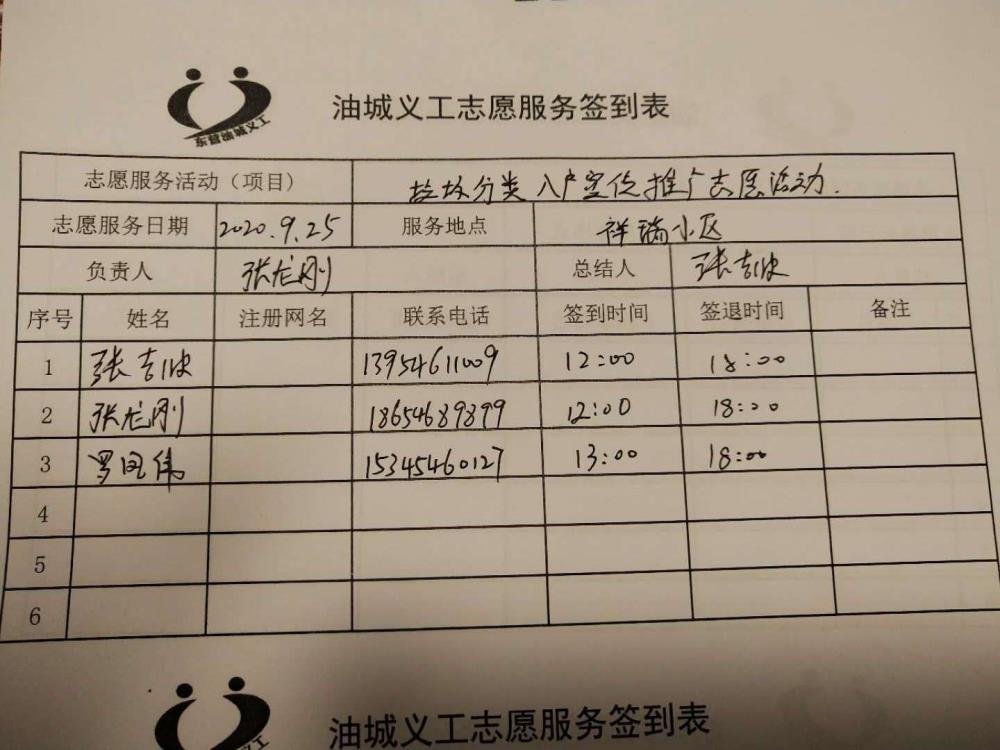 东营油城义工
油城义工志愿服务签到表
志愿服务活动（项目） 垃圾分类入户宣传推广志愿活动.
志愿服务日期 2020.9.25 服务地点 祥瑞小区
负责人 张龙刚 总结人 张吉波
序号 姓名 注册网名 联系电话 签到时间 签退时间 备注
1 张吉波 13954611009 12:00 18:00
2 张龙刚 18654689899 12:00 18:00
3 罗凤伟 15345460127 13:00 18:00
4
5
6
油城义工志愿服务签到表